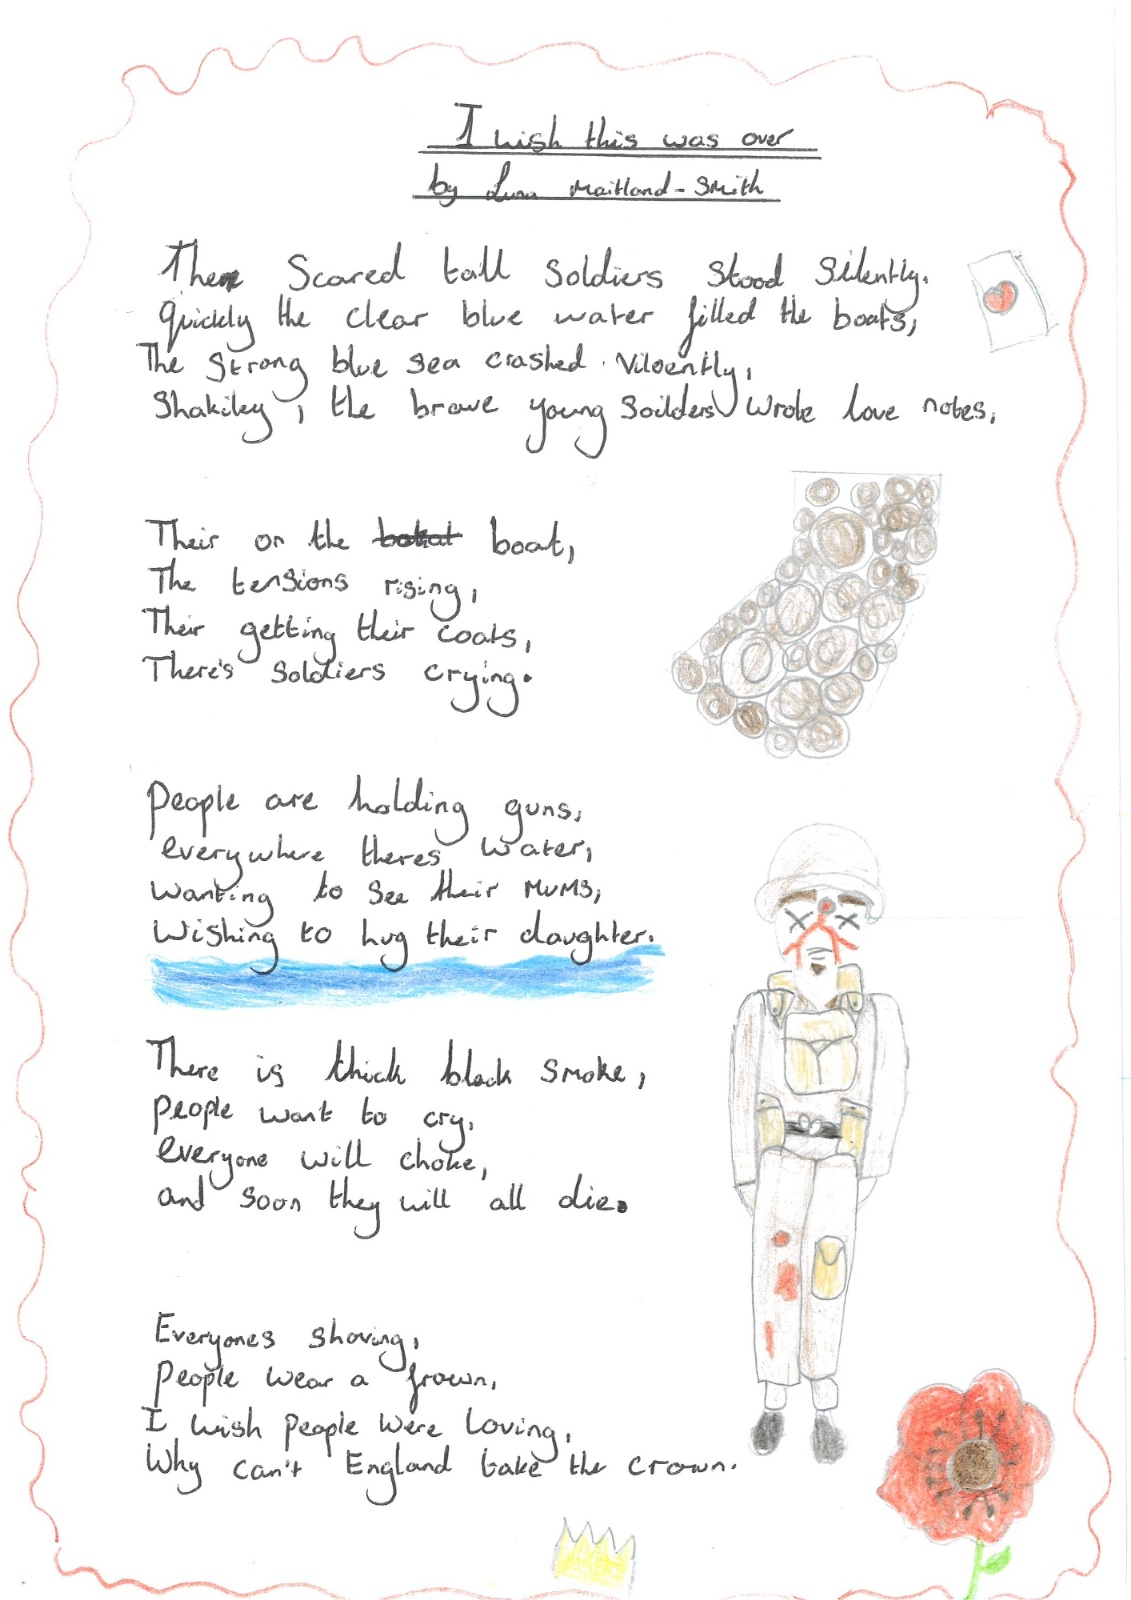 I wish this was over
by Luna Maitland-Smith
The scared tall soldiers stood silently.
Quickly the clear blue water filled the boats,
The strong blue sea crashed viloently,
Shakiley, the brave young soilders wrote love notes,
Their on the boat,
The tensions rising,
Their getting their coats,
There's soldiers crying.
People are holding guns,
everywhere theres water,
wanting to see their mums,
Wishing to hug their daughter.
There is thick black smoke,
people want to cry,
everyone will choke,
and soon they will all die.
Everyones shoving,
People wear a frown,
I wish people were loving,
Why can't England take the crown.